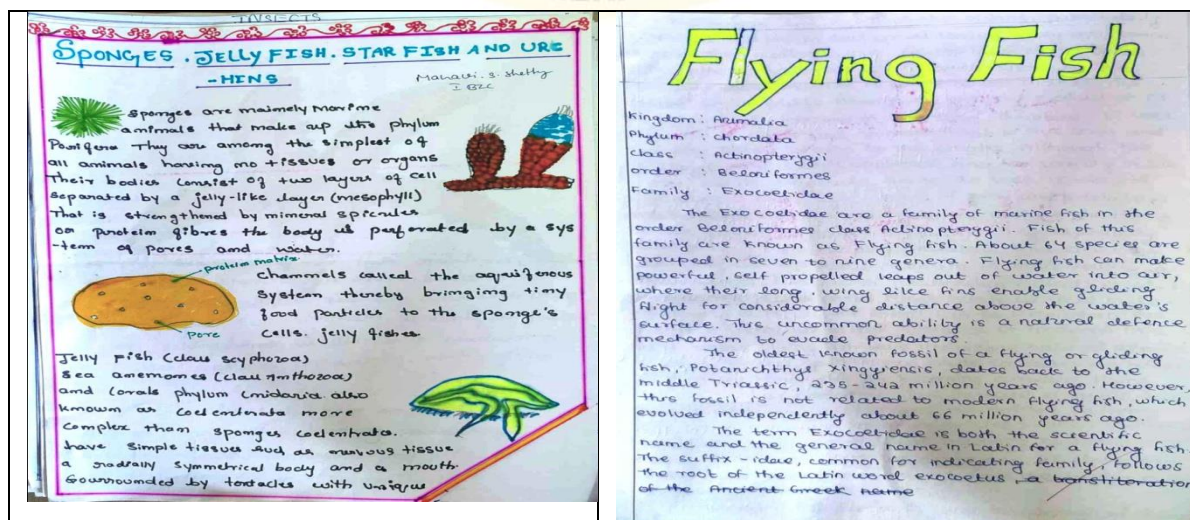 INSECTS
SPONGES . JELLY FISH . STAR FISH AND URC
-HINS
I BZC
Sponges are mainely Marine
animals that make up the phylum
Porifera They are among the simplest of
all animals having no tissues or organs
Their bodies consist of two layers of cell
separated by a jelly-like layer (mesophyll)
That is strengthened by mineral spicules
or protein fibres the body is perforated by a sys
-tem of pores and water.
protein matrix
Channels called the aquiferous
System thereby bringing tiny
food particles to the sponge's
Cells. jelly fishes
pore
Jelly Fish (class scyphozoa)
Sea anemones (class Anthozoa)
and corals phylum cnidaria also
known as coelenterata more
complex than sponges coelentrata.
have simple tissues such as nervous tissue
a radially symmetrical body and a mouth
Sourrounded by tentacles with unique
Flying Fish
Kingdom : Animalia
Phylum : Chordata
class : Actinopterygii
order : Beloniformes
Family : Exocoetidae
The Exocoetidae are a family of marine fish in the
order Beloniformes class Actinopterygii. Fish of this
family are known as Flying fish. About 64 species are
grouped in seven to nine genera. Flying fish can make
powerful, self propelled leaps out of water into air,
where their long wing like fins enable gliding
flight for considerable distance above the water's
surface. This uncommon ability is a natural defence
mechanism to evade predators.
The oldest known fossil of a flying or gliding
fish, Potanichthys Xingyiensis, dates back to the
middle Triassic, 235-242 million years ago. However,
this fossil is not related to modern flying fish, which
evolved independently about 66 million years ago.
The term Exocoetidae is both the scientific
name and the general name in Latin for a flying fish.
The suffix -idae, common for indicating family, follows
the root of the Latin word exocoetus, a transliteration
of the Ancient Greek name